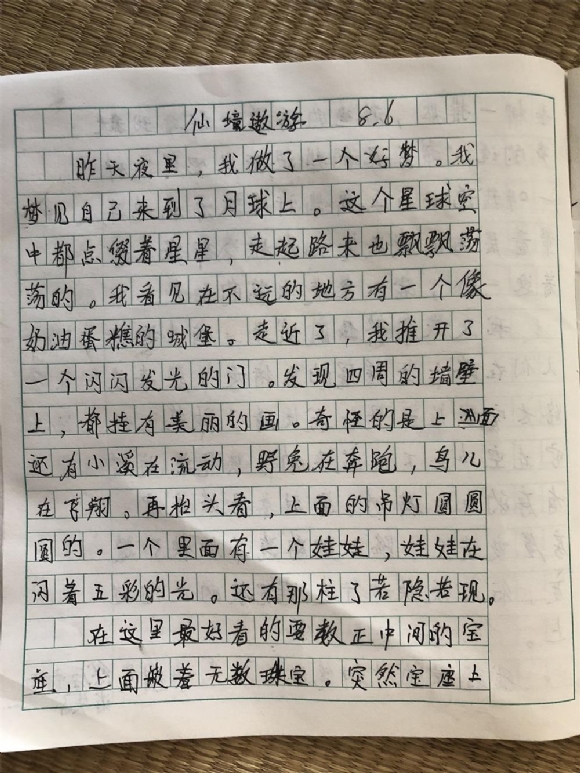 仙境遨游 8.6
昨天夜里，我做了一个好梦。我
梦见自己来到了月球上。这个星球空
中都点缀着星星，走起路来也飘飘荡
荡的。我看见在不远的地方有一个像
奶油蛋糕的城堡。走近了，我推开了
一个闪闪发光的门。发现四周的墙壁
上，都挂有美丽的画。奇怪的是上面
还有小溪在流动，野兔在奔跑，鸟儿
在飞翔。再抬头看，上面的吊灯圆圆
圆的。一个里面有一个娃娃，娃娃在
闪着五彩的光。还有那柱了若隐若现。
在这里最好看的要数正中间的宝
座，上面披着无数珠宝。突然宝座上